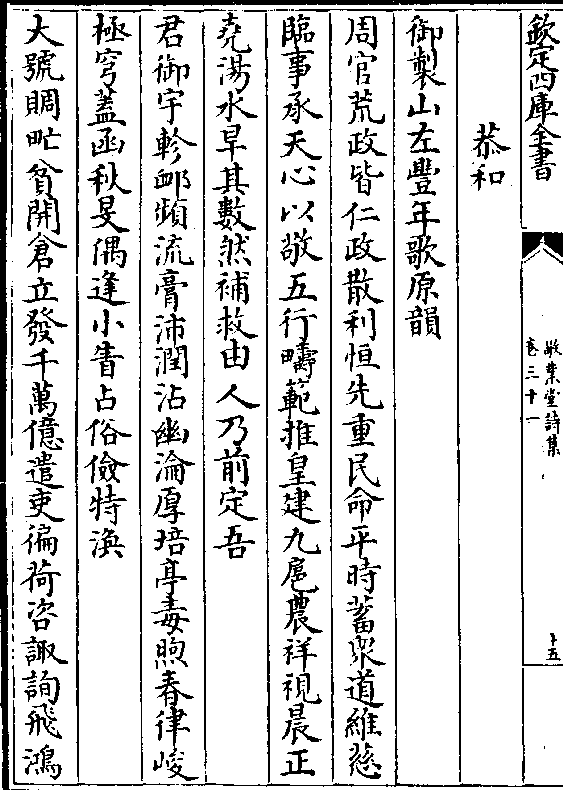 欽定四庫全書
敬業堂詩集
卷三十一
十五
恭和
御製山左豐年歌原韻
周官荒政皆仁政散利恒先重民命平時蓄衆道維慈
臨事承天心以敬五行疇範推皇建九扈農祥視晨正
堯湯水旱其數然補救由人乃前定吾
君御宇軫卹頻流膏沛潤沾幽淪厚培亭毒煦春律峻
極穹蓋函秋旻偶逢小眚占俗儉特渙
大號賙𤱶貧開倉立發千萬億遣吏徧荷咨諏詢飛鴻